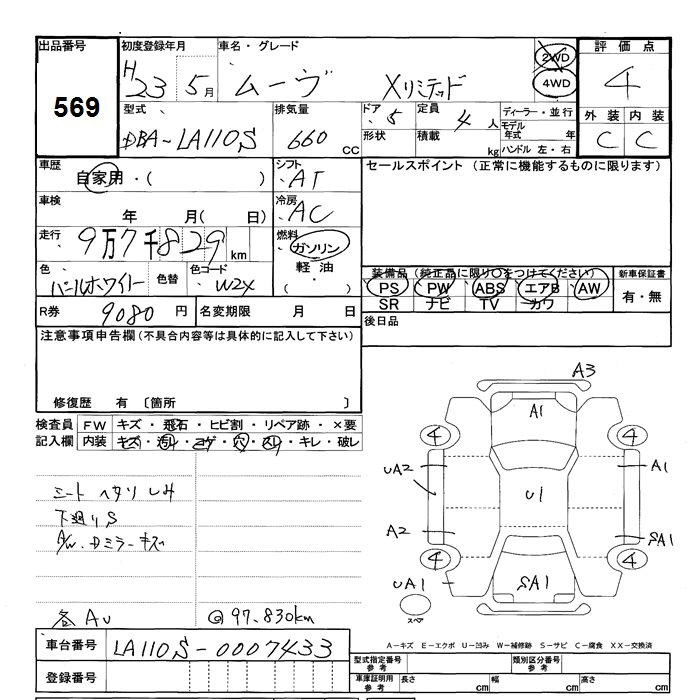 出品番号 初度登録年月 車名・グレード 評価点
569 H23 5月 ムーヴ Xリミテッド 2WD 4WD 4
型式 排気量 ドア・形状 定員 積載 ディーラー・並行 外装 内装
DBA-LA110S 660 CC 5 4人 kg モデル年式 年 C C
ハンドル 左・右
車歴 シフト セールスポイント (正常に機能するものに限ります)
自家用・( ) AT
車検 冷房
年 月( 日) AC
走行 燃料
9万7千829km ガソリン
軽油
( ・ )
色 色替 色コード 装備品 (純正品に限り○をつけてください) 新車保証書
パールホワイト W24 PS PW ABS エアB AW 有・無
SR ナビ TV カワ
R券 9080円 名変期限 月 日 後日品
注意事項申告欄(不具合内容等は具体的に記入して下さい)
修復歴 有 〔箇所 〕
検査員 FW キズ・飛石・ヒビ割・リペア跡・×要
記入欄 内装 キズ・汚れ・コゲ・穴・スレ・キレ・破レ
シート ヘタリ しみ
下廻りS
A/W・Dミラーキズ
各AU @97.830km
A3
A1
4 4
UA2 A1
U1
A2 SA1
4 4
UA1 SA1
スペア
A-キズ E-エクボ U-凹み W-補修跡 S-サビ C-腐食 XX-交換済
車台番号 LA110S-0007433
型式指定番号 参考 類別区分番号 参考
登録番号 車庫証明用 参考 長さ cm 幅 cm 高さ cm